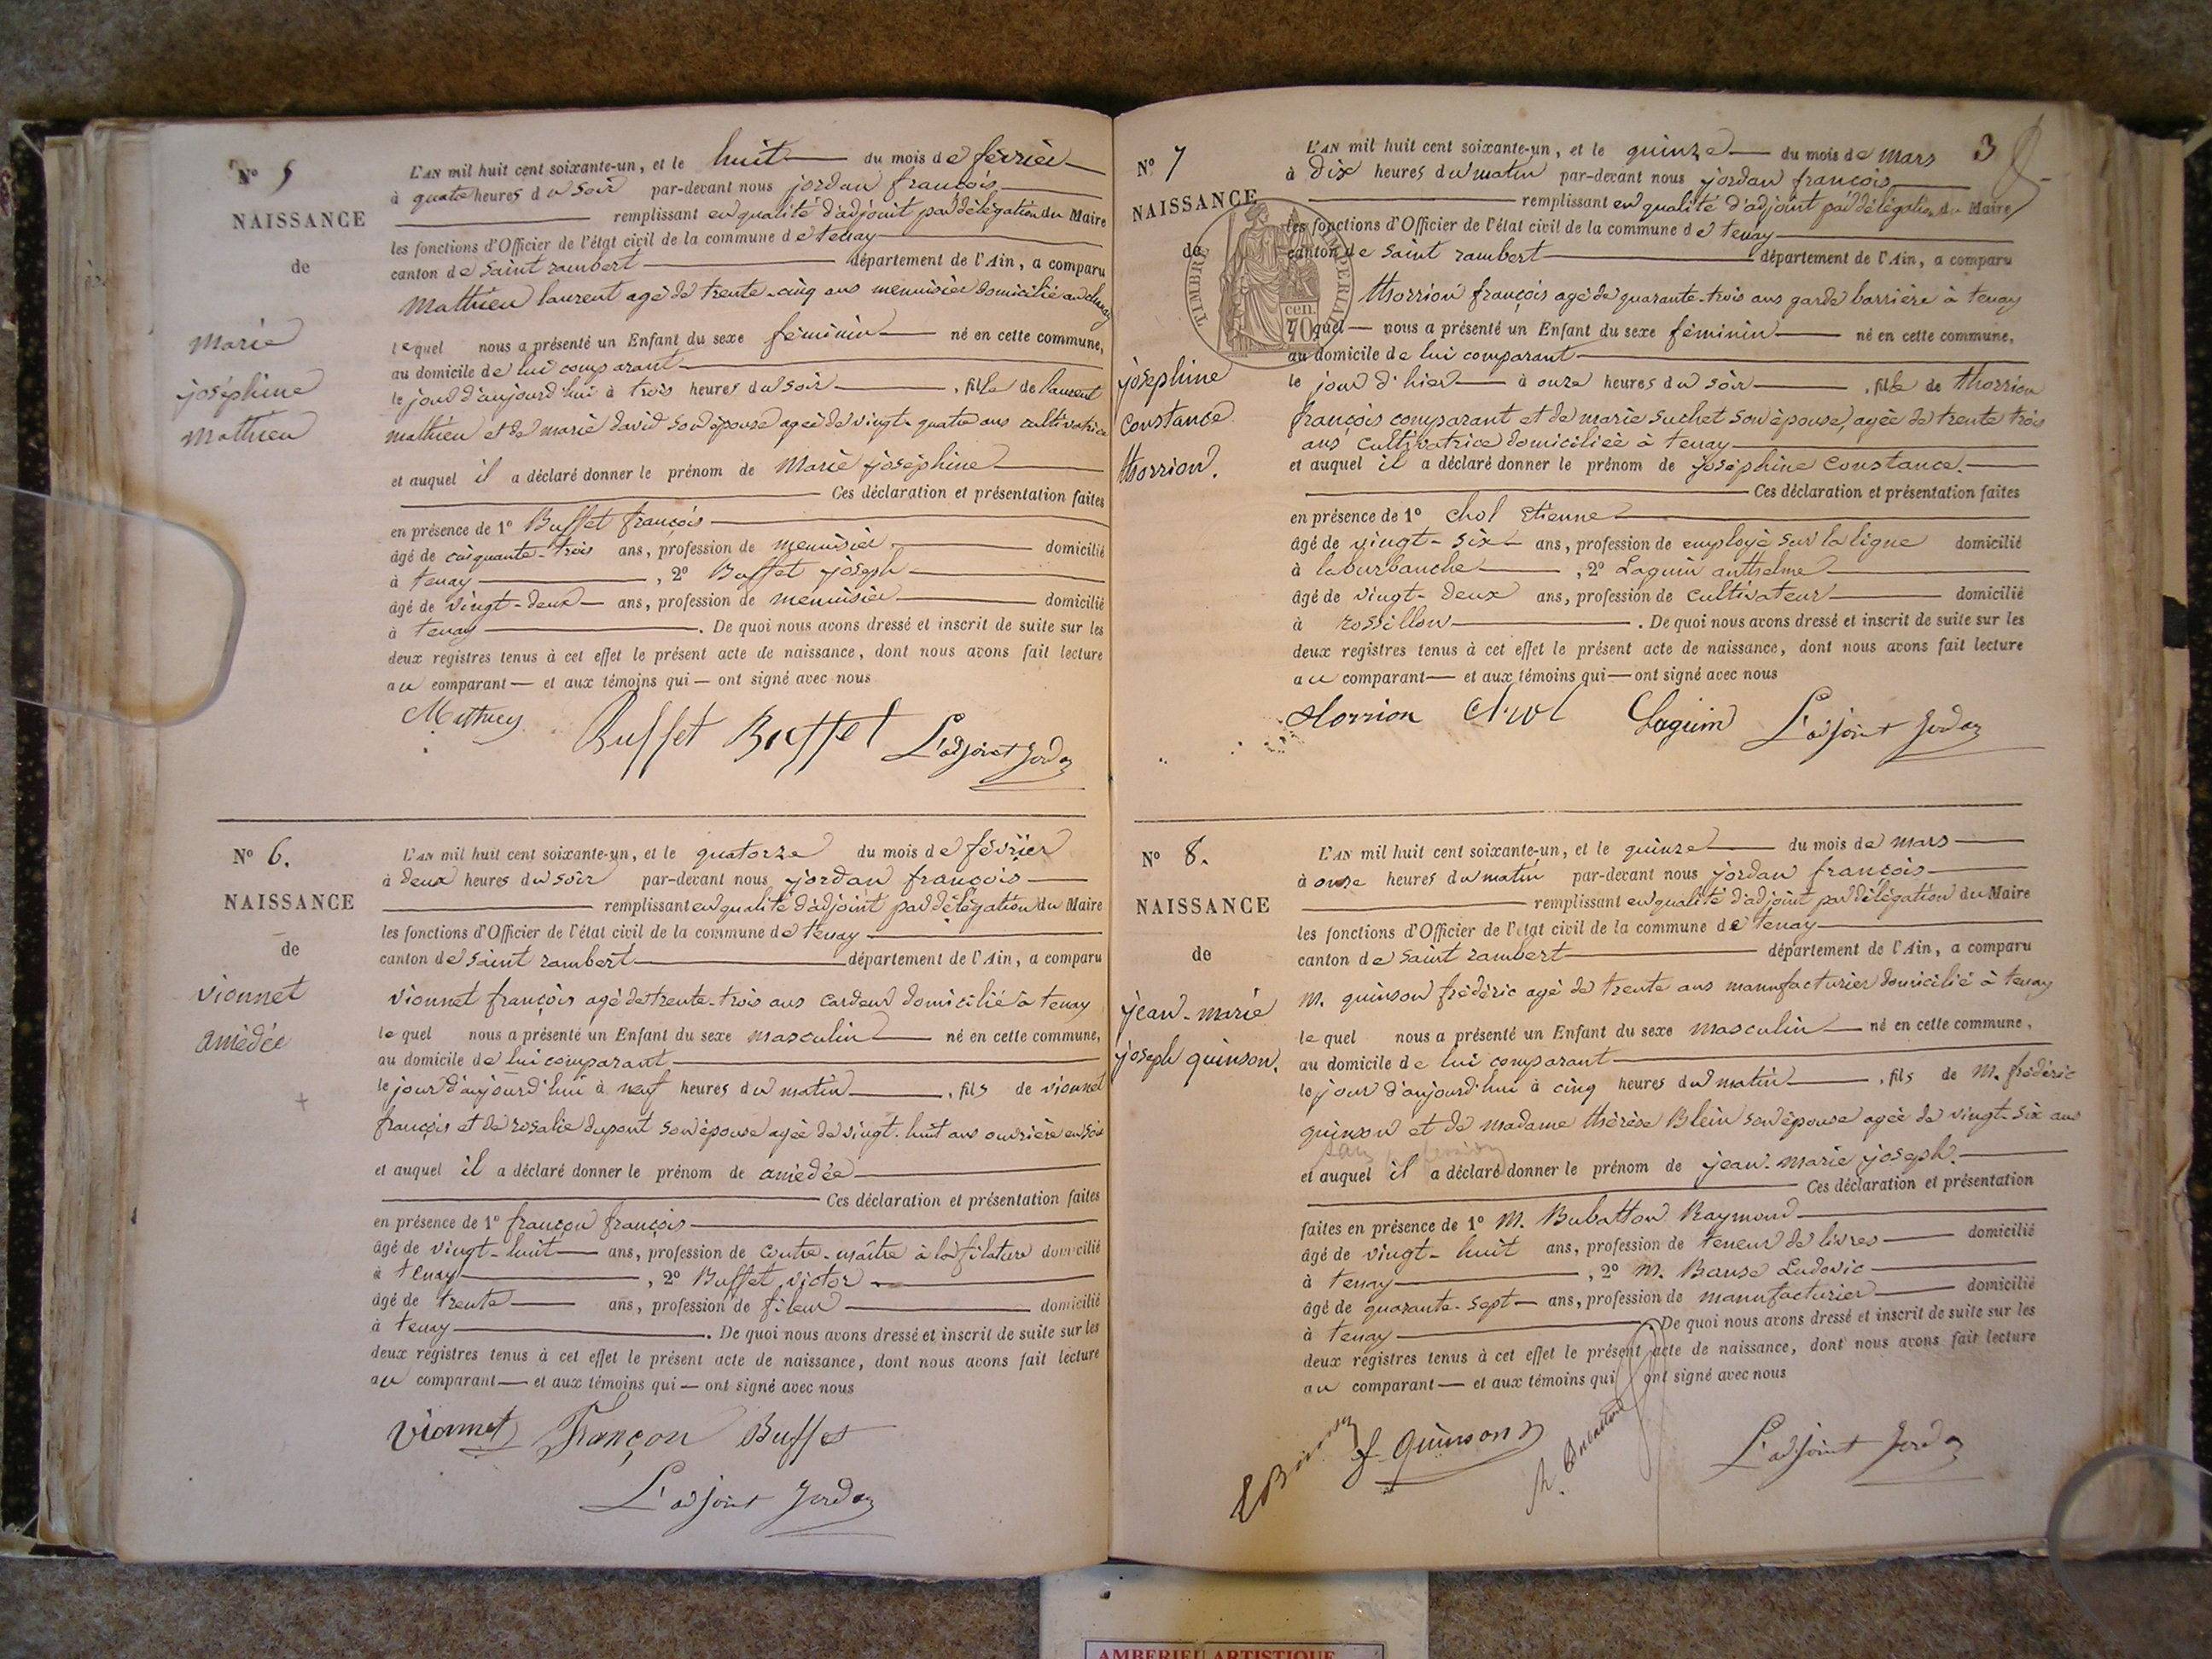 N° 5
NAISSANCE
de
Marie
joséphine
Mathieu
L'AN mil huit cent soixante-un, et le huit du mois de février
à quatre heures du soir par-devant nous jordan françois
remplissant en qualité d'adjoint par délégation du Maire
les fonctions d'Officier de l'état civil de la commune de tenay
canton de saint rambert département de l'Ain, a comparu
Mathieu laurent agé de trente-cinq ans menuisier domicilié
lequel nous a présenté un Enfant du sexe féminin né en cette commune,
au domicile de lui comparant
le jour d'aujourd'hui à trois heures du soir, fille de laurent
mathieu et de marie david son épouse agée de vingt-quatre ans cultivatrice
et auquel il a déclaré donner le prénom de Marie joséphine
Ces déclaration et présentation faites
en présence de 1° Buffet françois
âgé de cinquante-trois ans, profession de menuisier domicilié
à tenay, 2° Buffet joseph
âgé de vingt-deux ans, profession de menuisier domicilié
à tenay. De quoi nous avons dressé et inscrit de suite sur les
deux registres tenus à cet effet le présent acte de naissance, dont nous avons fait lecture
au comparant et aux témoins qui ont signé avec nous
Buffet Buffet L'adjoint Jordan
N° 6.
NAISSANCE
de
vionnet
amédée
L'AN mil huit cent soixante-un, et le quatorze du mois de février
à deux heures du soir par-devant nous jordan françois
remplissant en qualité d'adjoint par délégation du Maire
les fonctions d'Officier de l'état civil de la commune de tenay
canton de saint rambert département de l'Ain, a comparu
vionnet françois agé de trente-trois ans cardeur domicilié à tenay
lequel nous a présenté un Enfant du sexe masculin né en cette commune,
au domicile de lui comparant
le jour d'aujourd'hui à neuf heures du matin, fils de vionnet
françois et de rosalie dupont son épouse agée de vingt-huit ans ouvrière en soie
et auquel il a déclaré donner le prénom de amédée
Ces déclaration et présentation faites
en présence de 1° françon françois
âgé de vingt-huit ans, profession de contre-maître à la filature domicilié
à tenay, 2° Buffet victor
âgé de trente ans, profession de fileur domicilié
à tenay. De quoi nous avons dressé et inscrit de suite sur les
deux registres tenus à cet effet le présent acte de naissance, dont nous avons fait lecture
au comparant et aux témoins qui ont signé avec nous
Vionnet Françon Buffet
L'adjoint Jordan
3
N° 7
NAISSANCE
de
TIMBRE IMPERIAL
cen.
70
joséphine
constance
thorrion.
L'AN mil huit cent soixante-un, et le quinze du mois de mars
à dix heures du matin par-devant nous jordan françois
remplissant en qualité d'adjoint par délégation du Maire
les fonctions d'Officier de l'état civil de la commune de tenay
canton de saint rambert département de l'Ain, a comparu
thorrion françois agé de quarante-trois ans garde barrière à tenay
lequel nous a présenté un Enfant du sexe féminin né en cette commune,
au domicile de lui comparant
le jour d'hier à onze heures du soir, fille de thorrion
françois comparant et de marie suchet son épouse, agée de trente trois
ans cultivatrice domiciliée à tenay
et auquel il a déclaré donner le prénom de joséphine constance.
Ces déclaration et présentation faites
en présence de 1° chol etienne
âgé de vingt-six ans, profession de employé sur la ligne domicilié
à laburbanche, 2° Laguin anthelme
âgé de vingt-deux ans, profession de cultivateur domicilié
à rossillon. De quoi nous avons dressé et inscrit de suite sur les
deux registres tenus à cet effet le présent acte de naissance, dont nous avons fait lecture
au comparant et aux témoins qui ont signé avec nous
thorrion Chol Laguin L'adjoint Jordan
N° 8.
NAISSANCE
de
jean-marie
joseph quinson.
L'AN mil huit cent soixante-un, et le quinze du mois de mars
à onze heures du matin par-devant nous jordan françois
remplissant en qualité d'adjoint par délégation du Maire
les fonctions d'Officier de l'état civil de la commune de tenay
canton de saint rambert département de l'Ain, a comparu
M. quinson frédéric agé de trente ans manufacturier domicilié à tenay
lequel nous a présenté un Enfant du sexe masculin né en cette commune,
au domicile de lui comparant
le jour d'aujourd'hui à cinq heures du matin, fils de M. frédéric
quinson et de madame thérèse Blein son épouse agée de vingt-six ans
et auquel il a déclaré donner le prénom de jean-marie joseph.
Ces déclaration et présentation
faites en présence de 1° M. Bubatton Raymond
âgé de vingt-huit ans, profession de teneur de livres domicilié
à tenay, 2° M. Ludovic
âgé de quarante-sept ans, profession de manufacturier domicilié
à tenay. De quoi nous avons dressé et inscrit de suite sur les
deux registres tenus à cet effet le présent acte de naissance, dont nous avons fait lecture
au comparant et aux témoins qui ont signé avec nous
f Quinson L'adjoint Jordan
AMBERIEU ARTISTIQUE